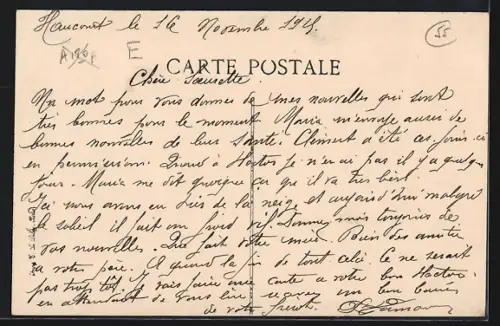 Haucourt le 16 Novembre 1915.
55
A196
E
CARTE POSTALE
Chère Soeurette.
Un mot pour vous donner de mes nouvelles qui sont
très bonnes pour le moment Maria m'envoye aussi de
bonnes nouvelles de leur santé. Clément a été ces jours ci
en permission. Quand à Hector je n'en ai pas il y a quelques
jours. Maria me dit que ça va très bien.
Ici nous avons eu de la neige et aujourd'hui malgré
le soleil il fait un froid vif. Donnez moi toujours de
vos nouvelles. Que fait votre mari. Bien des amitiés
à votre père. A quand la fin de tout cela ce ne serait
pas trop tôt. Je vais faire une carte à votre bon Hector
en attendant de vous lire recevez un bon baiser
de votre